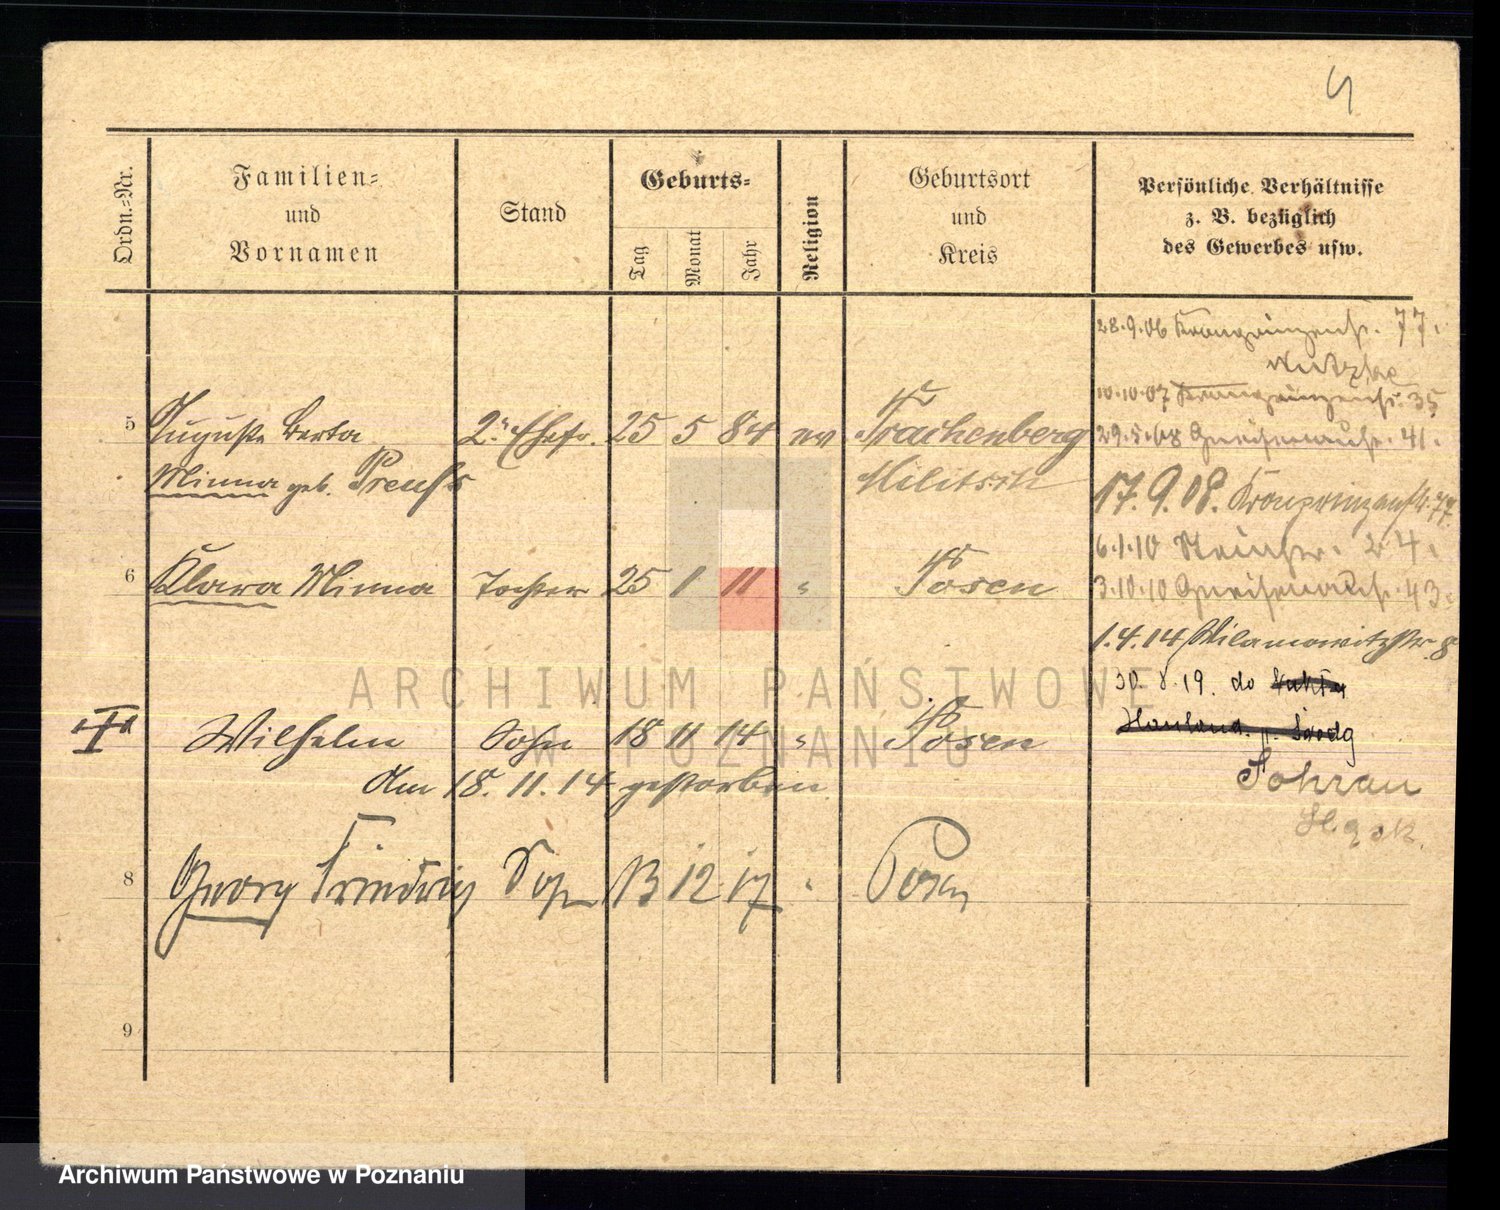 4
Ordn.-Nr.
Familien-
und
Vornamen
Stand
Geburts-
Tag
Monat
Jahr
Religion
Geburtsort
und
Kreis
Persönliche Verhältnisse
z. B. bezüglich
des Gewerbes usw.
28.9.06 Kronprinzenstr. 77.
10.10.07 Kronprinzenstr. 35
5 Auguste Berta 2. Ehefr. 25 5 84 ev Trachenberg
29.5.08 Gneisenaustr. 41.
Minna geb. Preuß Militsch
17.9.08. Kronprinzenstr. 77.
6.1.10 24.
6 Klara Minna Tochter 25 1 11 " Posen
3.10.10 Gneisenaustr. 43.
1.4.14 Wilamowitzstr. 8
30.8.19. do
Wilhelm Sohn 18 11 14 " Posen
Am 18.11.14 gestorben.
Sohrau
8 Georg Friedrich Sohn 13 12 17 " Posen
9
ARCHIWUM PAŃSTWOWE
W POZNANIU
Archiwum Państwowe w Poznaniu